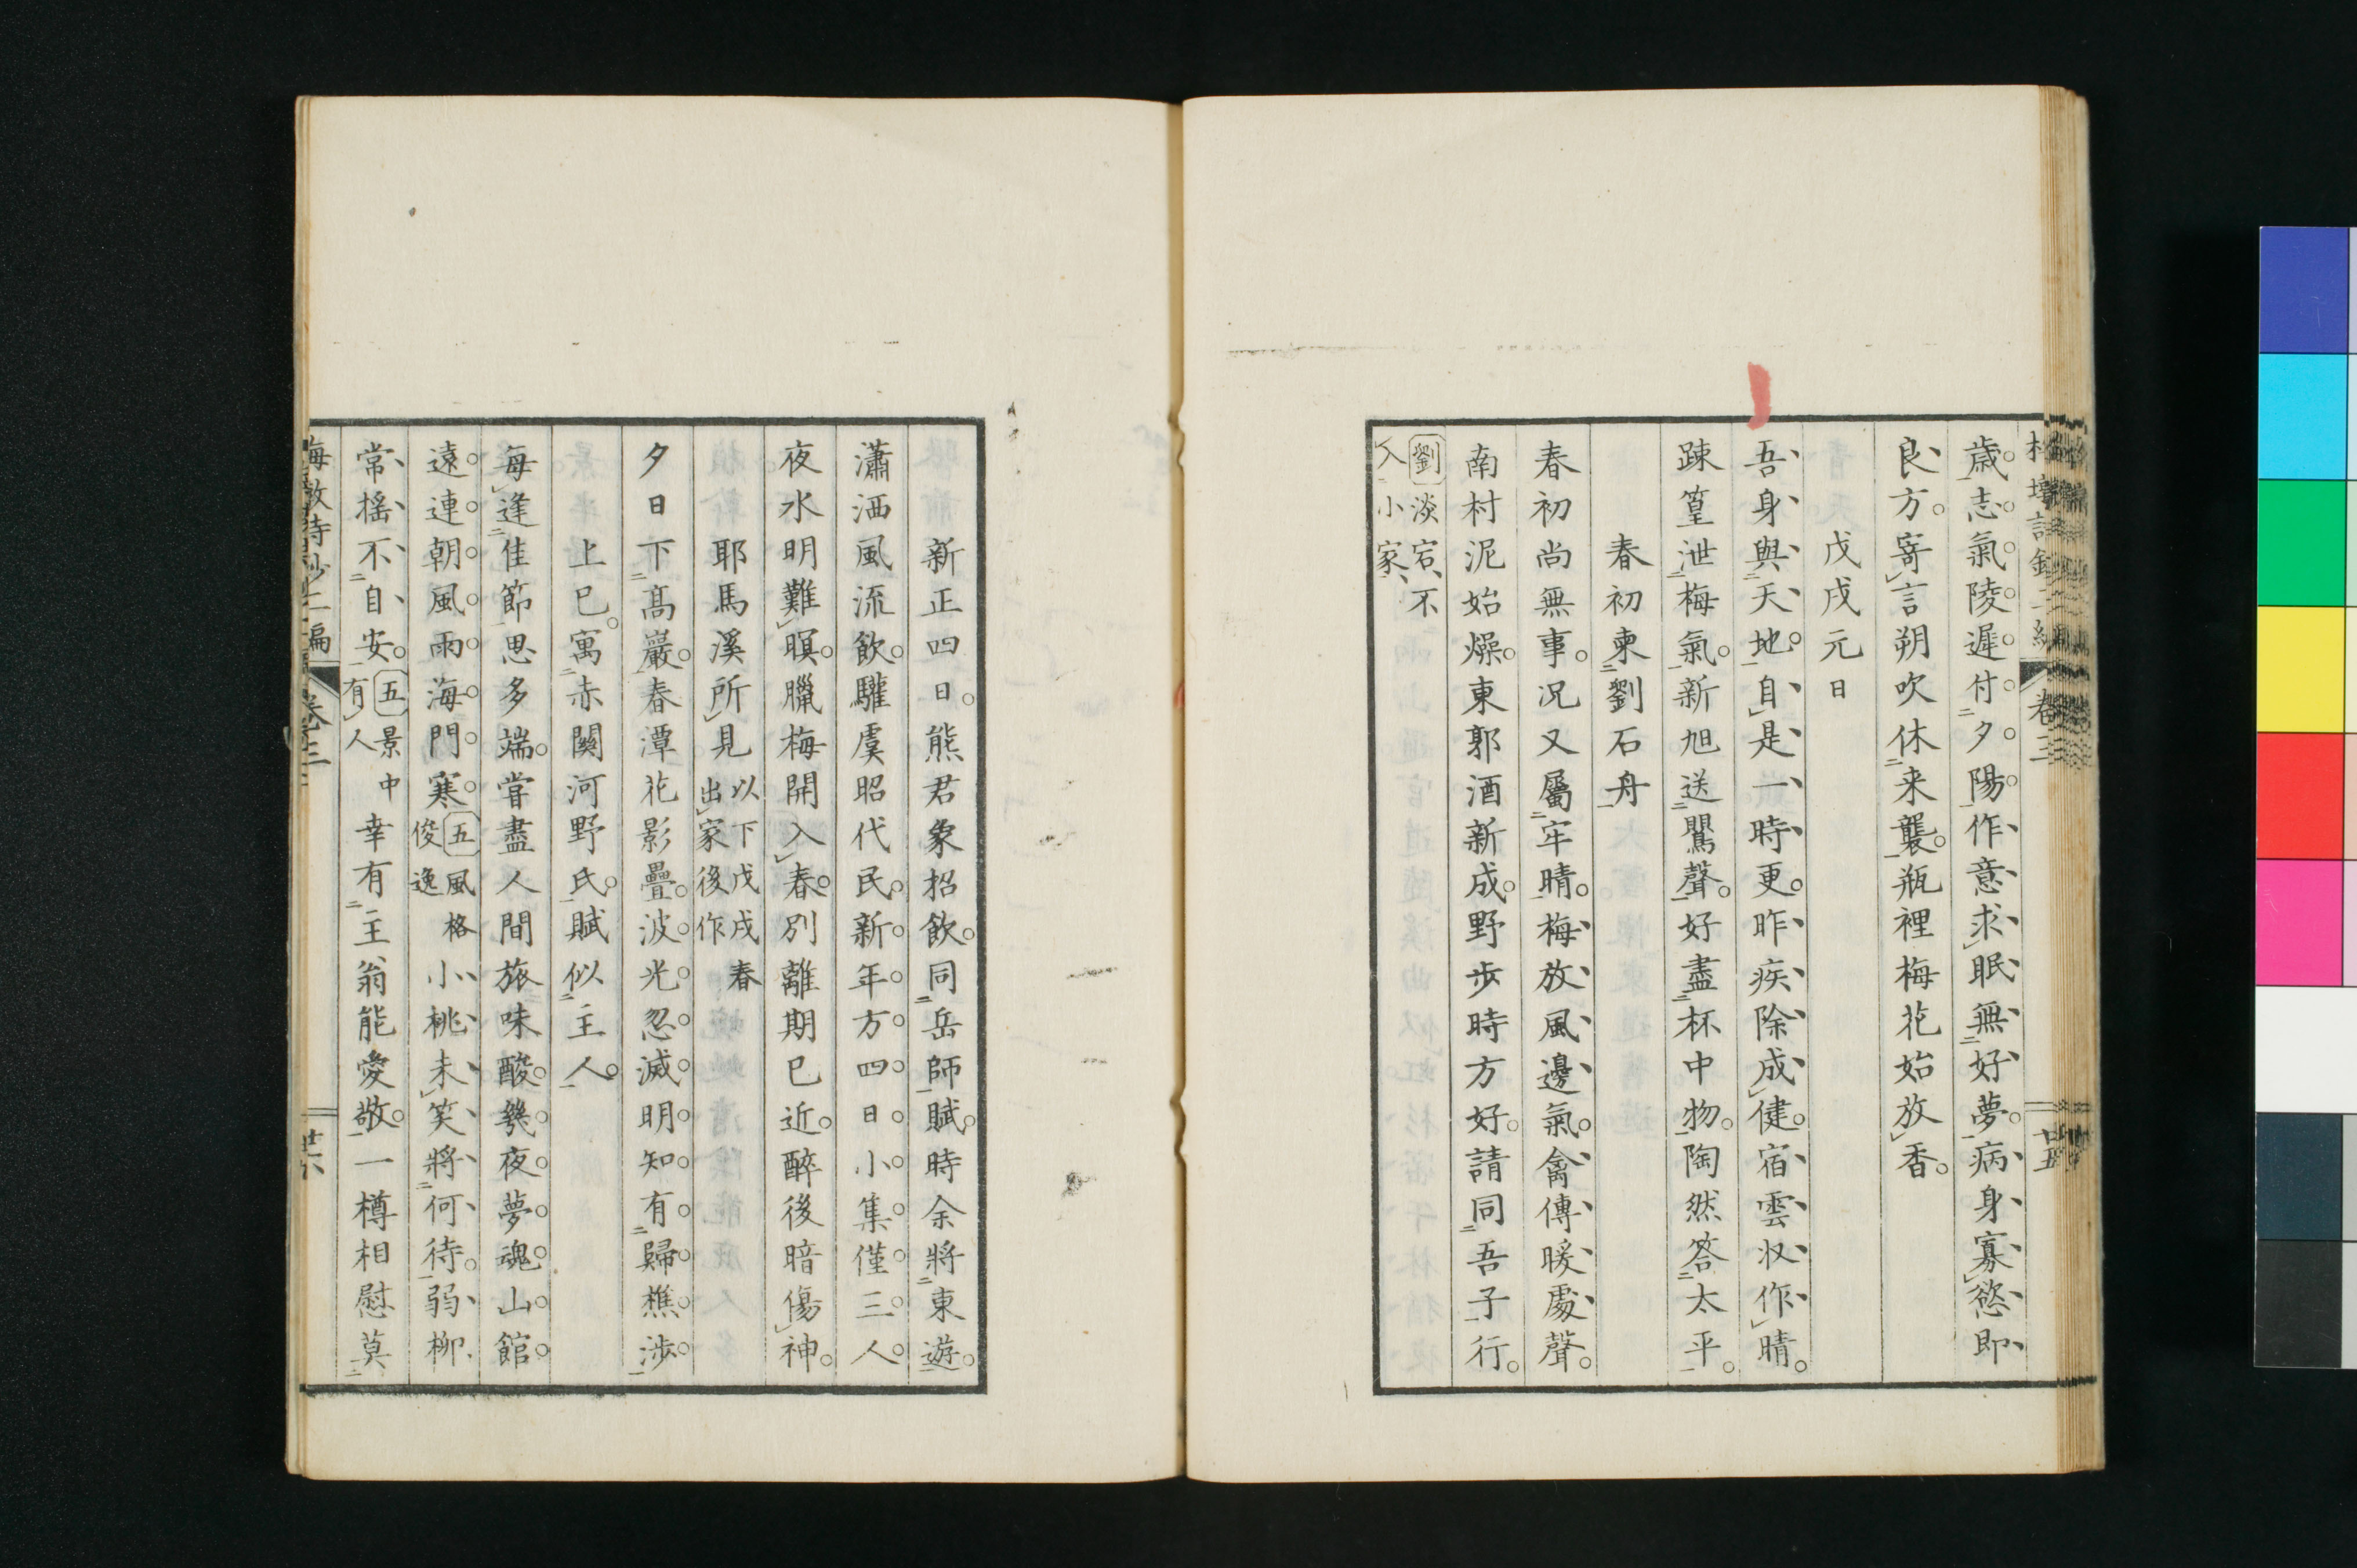 歳志氣陵遲付夕陽作意求眠無好夢病身寡慾即
良方寄言朔吹休来襲瓶裡梅花始放香
戊戌元日
吾身與天地自是一時更昨疾除成健宿雲収作晴
踈篁泄梅氣新旭送鸎聲好盡杯中物陶然答太平
春初柬劉石舟
春初尚無事况又屬牢晴梅放風邊氣禽傳暖處聲
南村泥始燥東郭酒新成野歩時方好請同吾子行
劉淡宕不
入小家
卷三
廿五
新正四日熊君象招飲同岳師賦時余將東遊
瀟洒風流飲驩虞昭代民新年方四日小集僅三人
夜水明難暝臘梅開入春別離期已近醉後暗傷神
耶馬溪所見以下戊戌春
出家後作
夕日下高巖春潭花影疊波光忽滅明知有歸樵渉
上巳寓赤關河野氏賦似主人
每逢佳節思多端嘗盡人間旅味酸幾夜夢魂山館
遠連朝風雨海門寒五風格
俊逸
小桃未笑將何待弱柳
常搖不自安五景中
有人
幸有主翁能愛敬一樽相慰莫
卷三